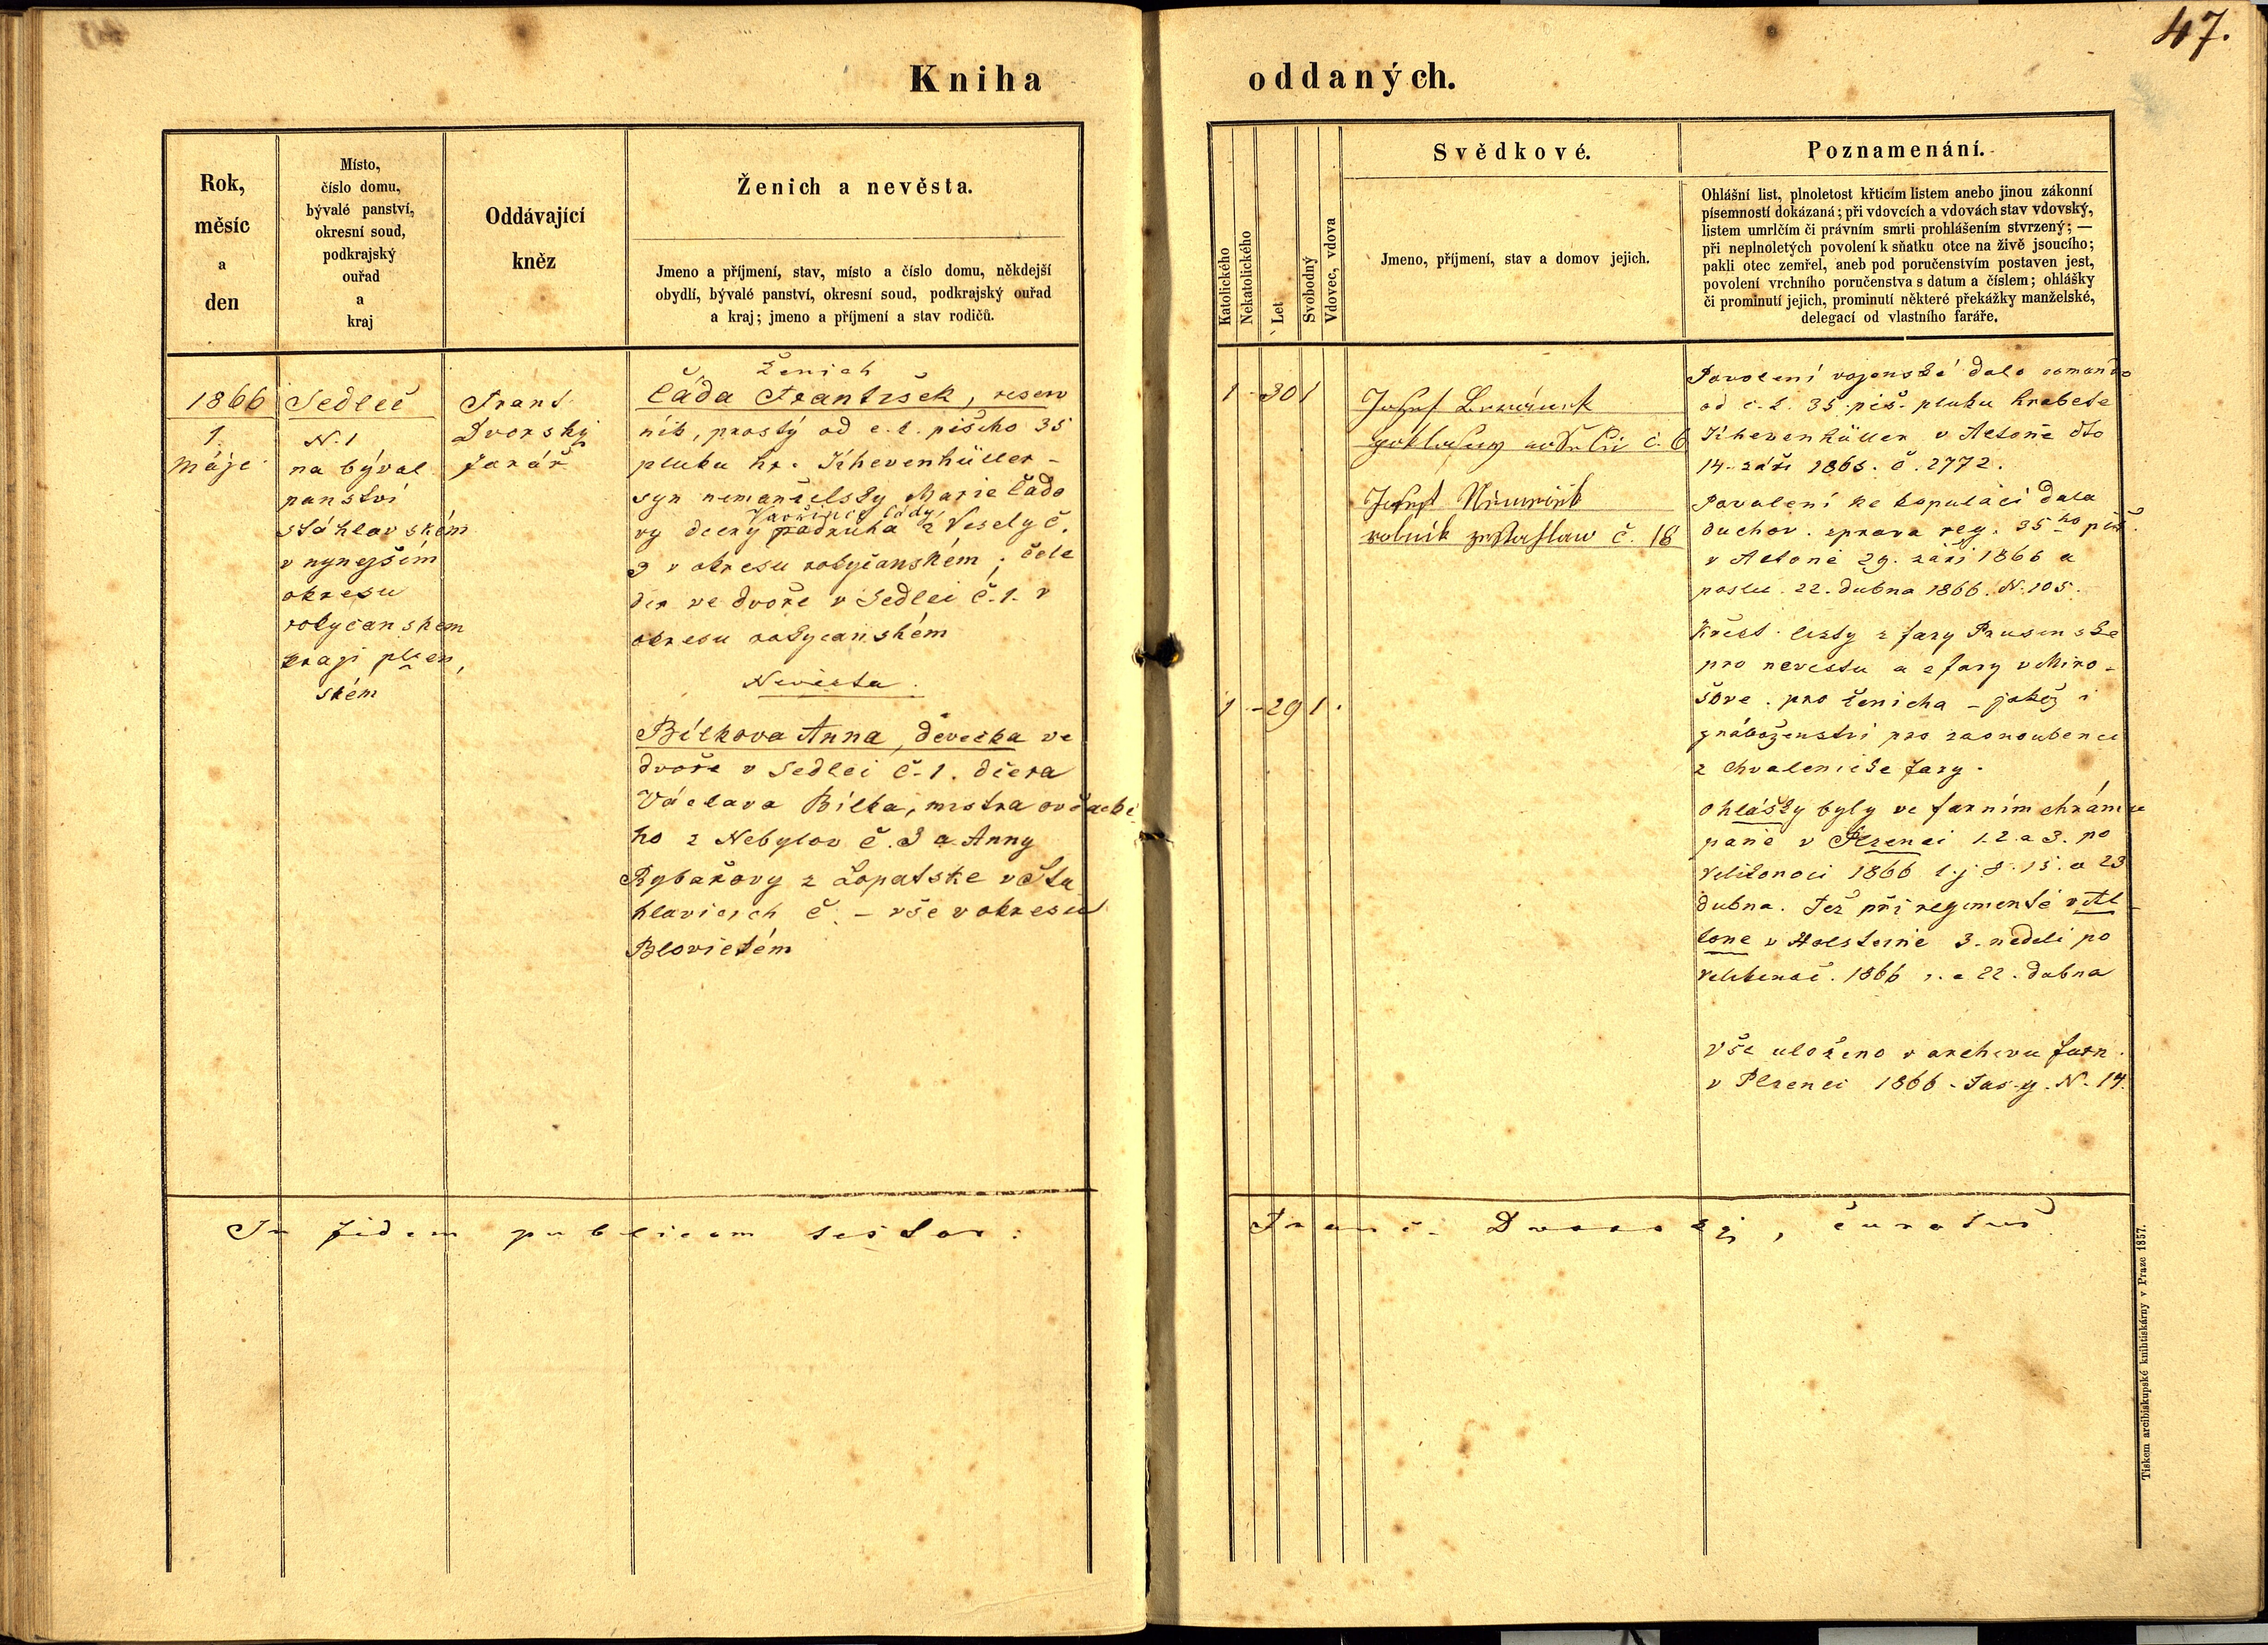 47.
Kniha oddaných.
Rok,
měsíc
a
den
Místo,
číslo domu,
bývalé panství,
okresní soud,
podkrajský
ouřad
a
kraj
Oddávající
kněz
Ženich a nevěsta.
Jmeno a příjmení, stav, místo a číslo domu, někdejší
obydlí, bývalé panství, okresní soud, podkrajský ouřad
a kraj; jmeno a příjmení a stav rodičů.
Katolického
Nekatolického
Let
Svobodný
Vdovec, vdova
Svědkové.
Jmeno, příjmení, stav a domov jejich.
Poznamenání.
Ohlášní list, plnoletost křticím listem anebo jinou zákonní
písemností dokázaná; při vdovcích a vdovách stav vdovský,
listem umrlčím či právním smrti prohlášením stvrzený; —
při neplnoletých povolení k sňatku otce na živě jsoucího;
pakli otec zemřel, aneb pod poručenstvím postaven jest,
povolení vrchního poručenstva s datum a číslem; ohlášky
či prominutí jejich, prominutí některé překážky manželské,
delegací od vlastního faráře.
1866
1.
Máje
Sedleč
N. 1
na býval
panství
stáhlavském
v nynejším
okresu
rokyčanském
kragi plzen,
ském
Frant.
Dvorský
farář
Ženich
Čáda František, reserv
nik, prostý od c. k. pěšího 35
pluku hr. Khevenhüller -
syn nemanželský Marie Čado
vy dcery Vavřince Čády podruha z Veselý č.
9 v okresu rokyčanském; čele
dín ve dvoře v Sedlci č. 1. v
okresu rokycanském
Nevěsta.
Bílkova Anna, děvečka ve
dvoře v Sedlci č. 1. dcera
Václava Bílka, mistra ovčacké
ho z Nebylov č. 3 a Anny
Rybařovy z Lopatske v Šta
hlavicích č. - vše v okresu
Blovickém
1 - 30 1
1 - 29 1.
Josef
č. 6
Josef
rolník ze Stahlaw č. 18
Povolení vojenské dalo comando
od c. k. 35. pěš. pluku hrabete
Khevenhüller v Altoně dto
14. záři 1865. č. 2772.
Povolení ke kopulací dala
duchov. zprava reg. 35ho pěš.
v Altoně 29. září 1866 a
poslu. 22. dubna 1866. N. 105.
Křest. listy z fary Prusinske
pro nevestu a z fary v Miro-
šove. pro ženicha - jakož i
z náboženství pro zasnoubence
z Chvalenicke fary.
Ohlášky byly ve farním chrámu
páně v Plzenci 1. 2. a 3. po
Velikonoci 1866 t. j. 8. 15. a 23
dubna. Též při regimentě v Al-
tone v Holsteině 3. nedeli po
Velikonoc. 1866 22. dubna
Vše uloženo v archivu farn.
v Plzenci 1866. Fasz. N. 14.
In fidem publicam testor:
Franc. Dvorský, curatus
Tiskem arcibiskupské knihtiskárny v Praze 1857.